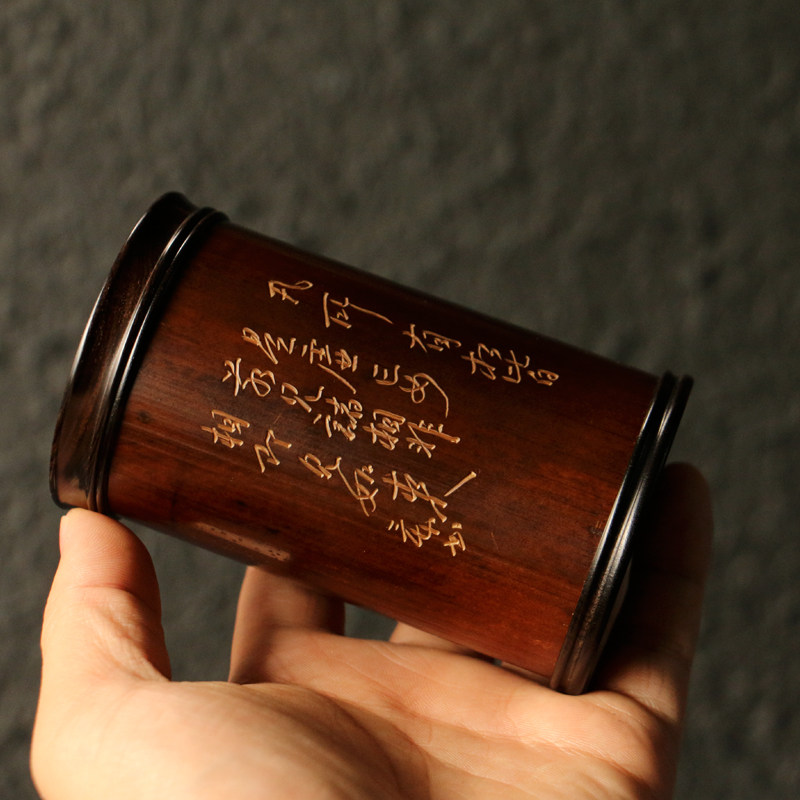 凡所有相皆
是虛妄
若见諸相非
相即见如来